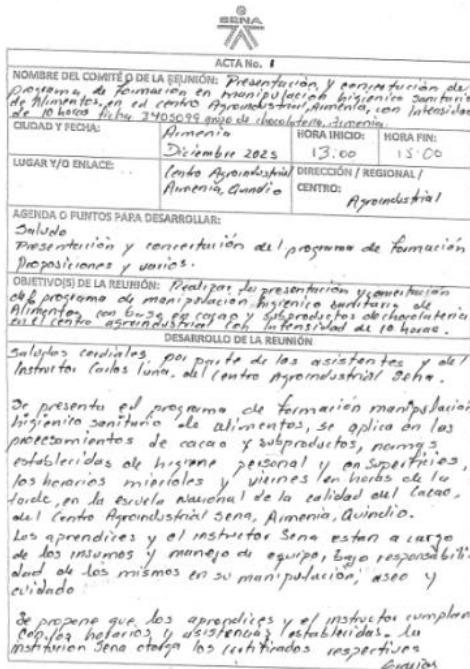 SENA
ACTA No. 1
NOMBRE DEL COMITÉ O DE LA REUNIÓN: Presentación y concertación del
programa, de formación en manipulación higienico sanitario
de Alimentos, en el centro Agroindustrial, Armenia, con Intensidad
de 10 horas ficha 3405099 grupo de chocolateria, Armenia.
CIUDAD Y FECHA: Armenia
Diciembre 2025
HORA INICIO: 13:00
HORA FIN: 15:00
LUGAR Y/O ENLACE: Centro Agroindustrial
Armenia, Quindío
DIRECCIÓN / REGIONAL /
CENTRO: Agroindustrial
AGENDA O PUNTOS PARA DESARROLLAR:
Saludo
Presentación y concertación del programa de formación
Proposiciones y varios.
OBJETIVO(S) DE LA REUNIÓN: Realizar la presentación y concertación
del programa de manipulación higienico sanitario de
Alimentos con base en cacao y subproductos de chocolateria
en el centro agroindustrial con Intensidad de 10 horas.
DESARROLLO DE LA REUNIÓN
Saludos cordiales, por parte de los asistentes y del
Instructor Carlos Luna, del Centro Agroindustrial Seña.
Se presenta el programa de formación manipulación
higienico sanitario de alimentos, se aplica en los
procesamientos de cacao y subproductos, normas
establecidas de higiene personal y en superficies,
los horarios miercoles y viernes en horas de la
tarde, en la escuela Nacional de la calidad del Cacao,
del Centro Agroindustrial Sena, Armenia, Quindío.
Los aprendices y el instructor Sena estan a cargo
de los insumos y manejo de equipo, bajo responsabili
dad de los mismos en su manipulación, aseo y
cuidado
Se propone que los aprendices y el instructor cumplan
con los horarios y asistencias establecidas. La
institucion Sena otorga los certificados respectivos
Gracias